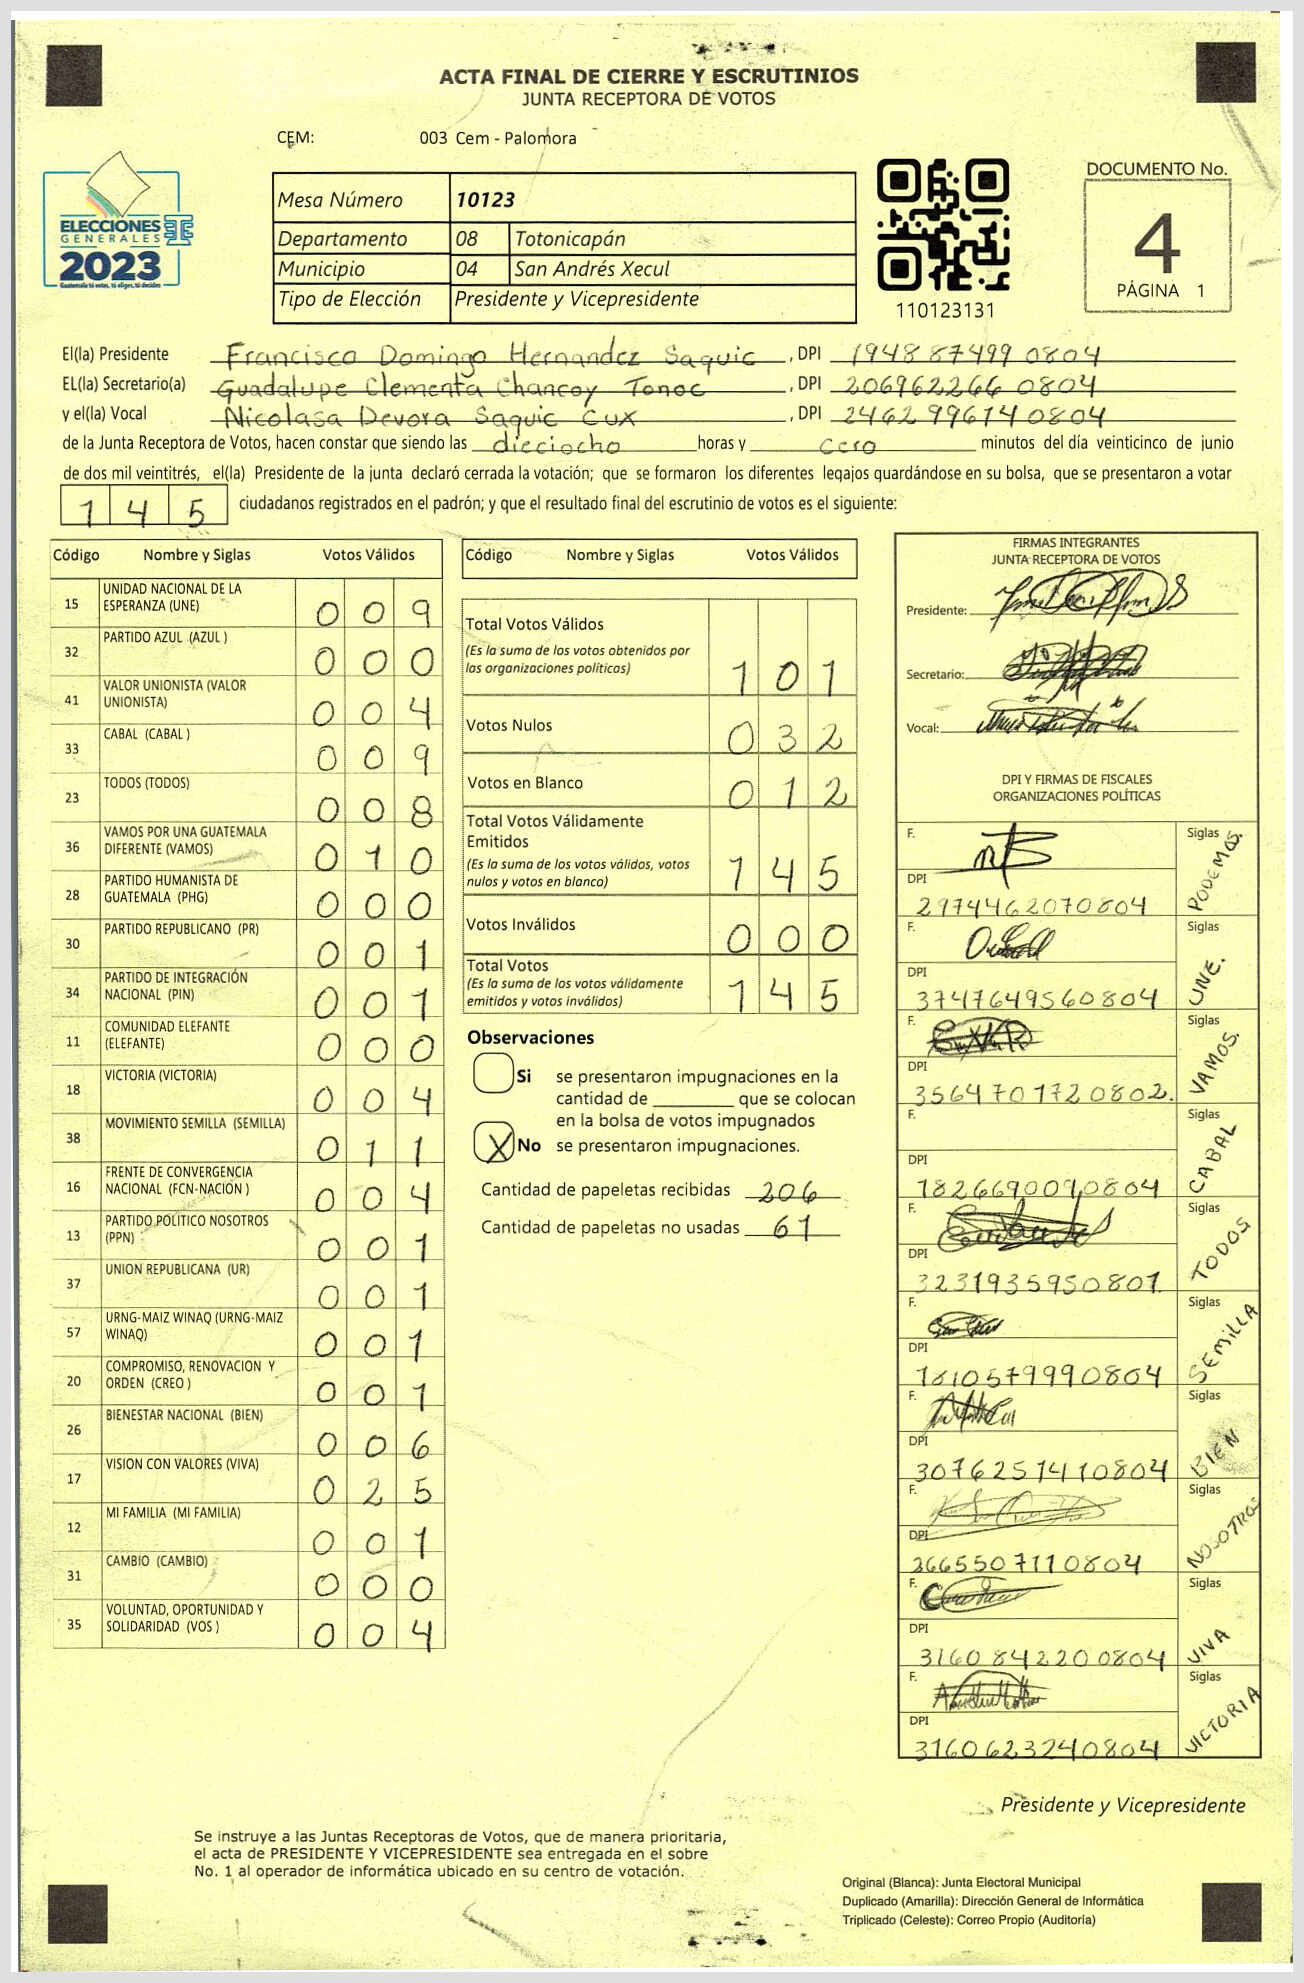 ACTA FINAL DE CIERRE Y ESCRUTINIOS
JUNTA RECEPTORA DE VOTOS
CEM: 003 Cem - Palomora
ELECCIONES
GENERALES
2023
Guatemala tú votas, tú eliges, tú decides
Mesa Número 10123
Departamento 08 Totonicapán
Municipio 04 San Andrés Xecul
Tipo de Elección Presidente y Vicepresidente
110123131
DOCUMENTO No.
4
PÁGINA 1
El(la) Presidente Francisco Domingo Hernandez Saquic , DPI 1948 87499 0804
EL(la) Secretario(a) Guadalupe Clementa Chancoy Tonoc , DPI 206962266 0804
y el(la) Vocal Nicolasa Devora Saquic Cux , DPI 2462996140804
de la Junta Receptora de Votos, hacen constar que siendo las dieciocho horas y cero minutos del día veinticinco de junio
de dos mil veintitrés, el(la) Presidente de la junta declaró cerrada la votación; que se formaron los diferentes legajos guardándose en su bolsa, que se presentaron a votar
145 ciudadanos registrados en el padrón; y que el resultado final del escrutinio de votos es el siguiente:
Código Nombre y Siglas Votos Válidos
15 UNIDAD NACIONAL DE LA ESPERANZA (UNE) 009
32 PARTIDO AZUL (AZUL ) 000
41 VALOR UNIONISTA (VALOR UNIONISTA) 004
33 CABAL (CABAL ) 009
23 TODOS (TODOS) 008
36 VAMOS POR UNA GUATEMALA DIFERENTE (VAMOS) 010
28 PARTIDO HUMANISTA DE GUATEMALA (PHG) 000
30 PARTIDO REPUBLICANO (PR) 001
34 PARTIDO DE INTEGRACIÓN NACIONAL (PIN) 001
11 COMUNIDAD ELEFANTE (ELEFANTE) 000
18 VICTORIA (VICTORIA) 004
38 MOVIMIENTO SEMILLA (SEMILLA) 011
16 FRENTE DE CONVERGENCIA NACIONAL (FCN-NACION ) 004
13 PARTIDO POLITICO NOSOTROS (PPN) 001
37 UNION REPUBLICANA (UR) 001
57 URNG-MAIZ WINAQ (URNG-MAIZ WINAQ) 001
20 COMPROMISO, RENOVACION Y ORDEN (CREO ) 001
26 BIENESTAR NACIONAL (BIEN) 006
17 VISION CON VALORES (VIVA) 025
12 MI FAMILIA (MI FAMILIA) 001
31 CAMBIO (CAMBIO) 000
35 VOLUNTAD, OPORTUNIDAD Y SOLIDARIDAD (VOS ) 004
Código Nombre y Siglas Votos Válidos
Total Votos Válidos
(Es la suma de los votos obtenidos por
las organizaciones políticas) 101
Votos Nulos 032
Votos en Blanco 012
Total Votos Válidamente
Emitidos
(Es la suma de los votos válidos, votos
nulos y votos en blanco) 145
Votos Inválidos 000
Total Votos
(Es la suma de los votos válidamente
emitidos y votos inválidos) 145
Observaciones
Si se presentaron impugnaciones en la
cantidad de ________ que se colocan
en la bolsa de votos impugnados
X No se presentaron impugnaciones.
Cantidad de papeletas recibidas 206
Cantidad de papeletas no usadas 61
FIRMAS INTEGRANTES
JUNTA RECEPTORA DE VOTOS
Presidente:
Secretario:
Vocal:
DPI Y FIRMAS DE FISCALES
ORGANIZACIONES POLÍTICAS
F. Siglas PODEMOS.
DPI 2974462070804
F. Siglas UNE.
DPI 3747649560804
F. Siglas VAMOS.
DPI 3564701720802.
F. Siglas CABAL
DPI 1826690090804
F. Siglas TODOS
DPI 3231935950801
F. Siglas SEMILLA
DPI 1810579990804
F. Siglas BIEN
DPI 3076251410804
F. Siglas NOSOTROS
DPI 2665507110804
F. Siglas VIVA
DPI 3160842200804
F. Siglas VICTORIA
DPI 3160623240804
Presidente y Vicepresidente
Se instruye a las Juntas Receptoras de Votos, que de manera prioritaria,
el acta de PRESIDENTE Y VICEPRESIDENTE sea entregada en el sobre
No. 1 al operador de informática ubicado en su centro de votación.
Original (Blanca): Junta Electoral Municipal
Duplicado (Amarilla): Dirección General de Informática
Triplicado (Celeste): Correo Propio (Auditoría)